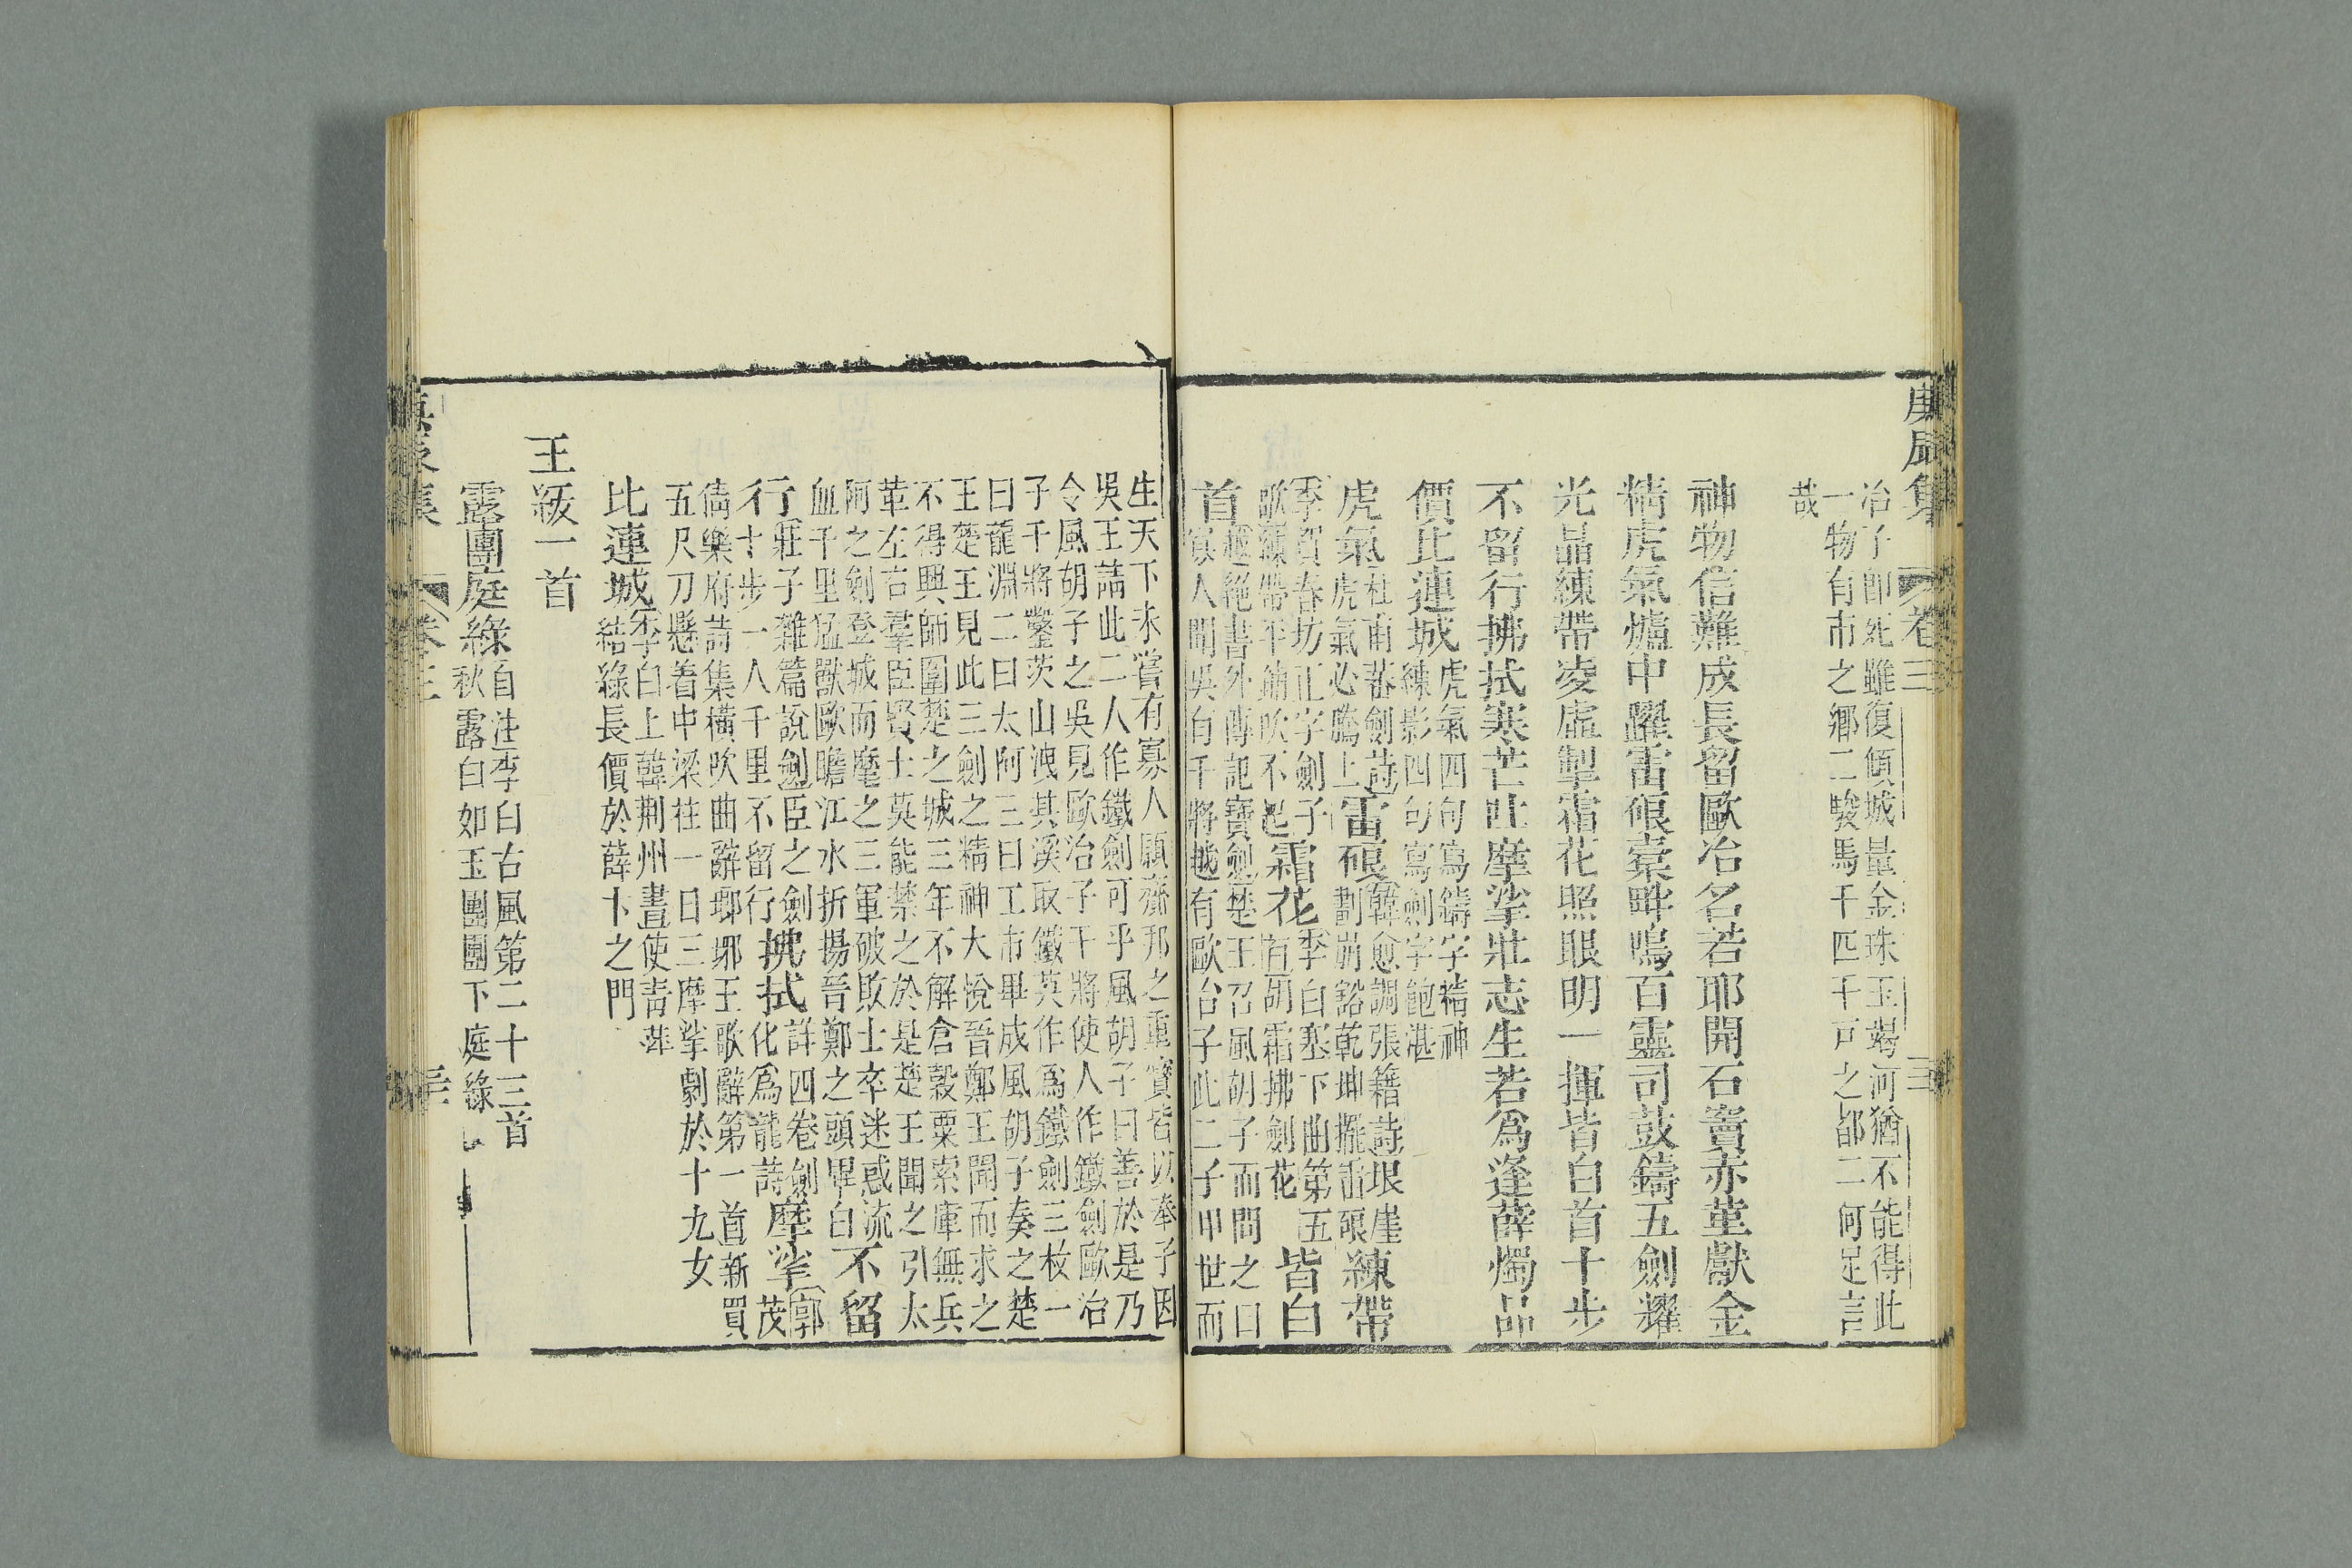 集
卷三
冶子卽死雖復傾城量金珠玉竭河猶不能得此
一物有市之鄉二駿馬千匹千戸之都二何足言
哉
神物信難成長留歐冶名若耶開石竇赤堇獻金
精虎氣爐中躍雷硠橐畔鳴百靈司鼓鑄五劍耀
光晶練帶凌虛掣霜花照眼明一揮皆白首十步
不留行拂拭寒芒吐摩挲壯志生若爲逢薛燭品
價比連城
虎氣四句寫鑄字精神
練影四句寫劍字飽湛
虎氣
杜甫蕃劍詩
虎氣必騰上
雷硠
韓愈調張籍詩垠崖
劃崩豁乾坤擺雷硠
練帶
李賀春坊正字劍子
歌練帶平鋪吹不起
霜花
李白塞下曲第五
首胡霜拂劍花
皆白
首
越絕書外傳記寶劍楚王召風胡子而問之曰
寡人聞吳有干將越有歐冶子此二子甲世而
生天下未嘗有寡人願齎邦之重寶皆以奉子因
吳王請此二人作鐵劍可乎風胡子曰善於是乃
令風胡子之吳見歐冶子干將使人作鐵劍歐冶
子干將鑿茨山洩其溪取鐵英作爲鐵劍三枚一
曰龍淵二曰太阿三曰工市畢成風胡子奏之楚
王楚王見此三劍之精神大悅晉鄭王聞而求之
不得興師圍楚之城三年不解倉穀粟索庫無兵
革左右羣臣賢士莫能禁之於是楚王聞之引太
阿之劍登城而麾之三軍破敗士卒迷惑流
血千里猛獸歐瞻江水折揚晉鄭之頭畢白
不留
行
莊子雜篇說劍臣之劍
十步一人千里不留行
拂拭
詳四卷劍
化爲龍詩
摩挲
郭茂
倩樂府詩集橫吹曲辭瑯琊王歌辭第一首新買
五尺刀懸着中梁柱一日三摩挲劇於十九女
比連城
李白上韓荆州書使靑萍
結綠長價於薛卞之門
王級一首
露團庭綠
自注李白古風第二十三首
秋露白如玉團團下庭綠
集
卷三